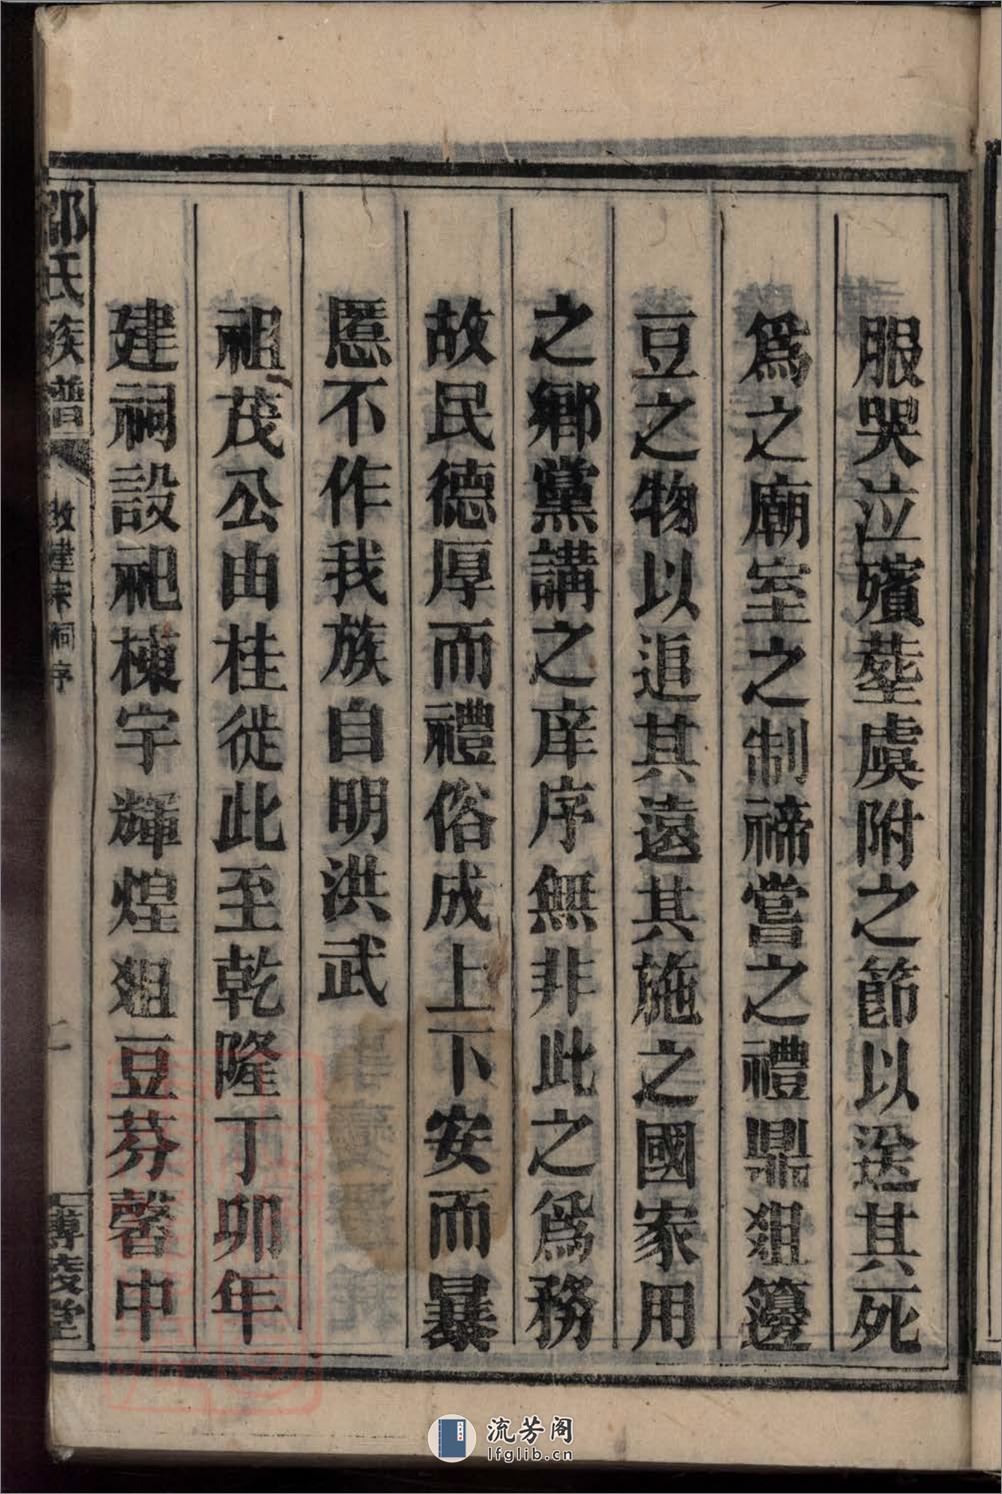 服哭泣殯葬虞附之節以送其死
爲之廟室之制禘嘗之禮鼎俎籩
豆之物以追其遠其施之國家用
之鄉黨講之庠序無非此之爲務
故民德德厚而禮俗成上下安而暴
慝不作我族自明洪武
祖茂公由桂徙此至乾隆丁卯年
建祠設祀棟宇輝煌俎豆芬馨中
氏族譜
改建宗祠序
二
博陵堂
流芳阁
lfglib.cn